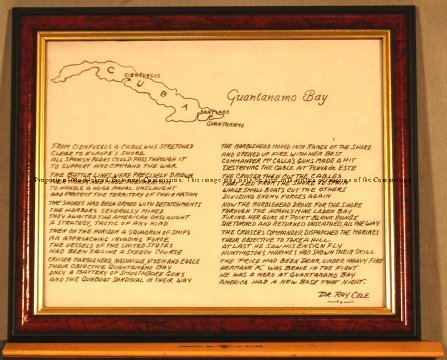 CUBA
CIENFUEGOS
SANTIAGO
GUANTANAMO
Guantanamo Bay
FROM CIENFUEGOS A CABLE WAS STRETCHED
CLEAR TO EUROPE'S SHORE
ALL SPANISH PLANS COULD PASS THROUGH IT
TO SUPPORT AND COMMAND THE WAR
THE BATTLE LINES WERE PRECISELY DRAWN
TO HANDLE A HUGE NAVAL ONSLAUGHT
AND PROTECT THE TERRITORY OF THEIR NATION
THE SHORES HAD BEEN ARMED WITH DETACHMENTS
THE HARBORS SEVERALLY MINED
THEY AWAITED THE AMERICAN ONSLAUGHT
A STRATEGIC TACTIC OF ANY KIND
THEN ON THE HORIZON A SQUADRON OF SHIPS
AN APPROACHING INVADING FORCE
THE VESSELS OF THE UNITED STATES
HAD BEEN SAILING A STEADY COURSE
CRUISER MARBLEHEAD, NASHVILLE, VIXEN AND EAGLE
THEIR OBJECTIVE GUANTANAMO BAY
ONLY A BATTERY OF SMOOTHBORE GUNS
AND THE GUNBOAT SANDOVAL IN THEIR WAY
THE MARBLEHEAD MOVED INTO RANGE OF THE SHORE
AND OPENED UP FIRE WITH HER BEST
COMMANDER McCALLA'S GUNS MADE A HIT
DESTROYING THE CABLE AT PLAYA del ESTE
THE CRUISER THEN CUT THE CABLES
THAT LED FROM THE SHORE TO SPAIN
WHILE SMALL BOATS CUT THE OTHERS
DIVIDING ENEMY FORCES AGAIN
NOW THE MARBLEHEAD DROVE FOR THE SHORE
THROUGH THE HEAVILY MINE LADEN BAY
FIRING HER GUNS AT POINT BLANK RANGE
SHE TURNED AND RETURNED UNSCATHED ALL THE WAY
THE CRUISER'S COMMANDER DISPATCHED THE MARINES
THEIR OBJECTIVE TO TAKE A HILL
THAT NIGHT HE SAW HIS ENSIGN FLY
HUNTINGTON'S MARINES HAD SHOWN THEIR SKILL
THE PRICE HAD BEEN DEAR UNDER HEAVY FIRE
HERMANN "K" WAS BRAVE IN THE FIGHT
HE WAS A HERO AT GUANTANAMO BAY
AMERICA HAD A NEW BASE THAT NIGHT.
DR. RAY COLE